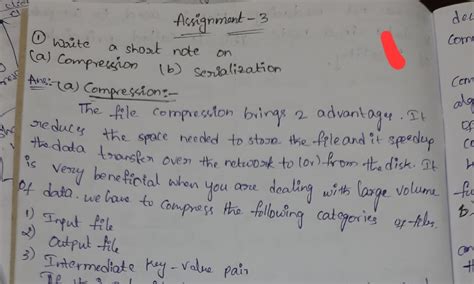 Assignment-3
① Write a short note on
(a) Compression (b) Serialization
Ans:- (a) Compression:-
The file compression brings 2 advantages. It
reduces the space needed to store the file and it speedup
the data transfer over the network to (or) from the disk. It
is very beneficial when you are dealing with large volume
of data. we have to compress the following categories of files.
1) Input file
2) Output file
3) Intermediate key-value pair